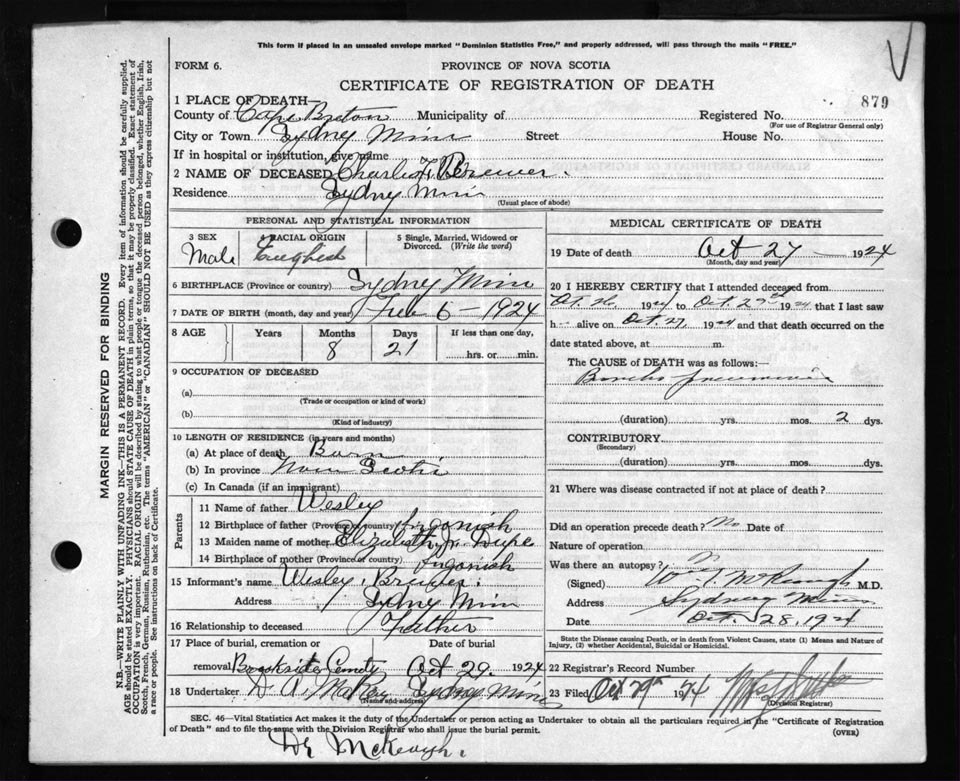 This form if placed in an unsealed envelope marked "Dominion Statistics Free," and properly addressed, will pass through the mails "FREE."
FORM 6.
PROVINCE OF NOVA SCOTIA
CERTIFICATE OF REGISTRATION OF DEATH
879
1 PLACE OF DEATH—
County of Cape Breton Municipality of Registered No.
(For use of Registrar General only)
City or Town Sydney Mines Street House No.
If in hospital or institution, give name
2 NAME OF DECEASED Charles Brewer.
Residence Sydney Mines
(Usual place of abode)
PERSONAL AND STATISTICAL INFORMATION
3 SEX Male
4 RACIAL ORIGIN English
5 Single, Married, Widowed or Divorced. (Write the word)
6 BIRTHPLACE (Province or country) Sydney Mines
7 DATE OF BIRTH (month, day and year) Feb 6 - 1924
8 AGE Years Months Days If less than one day,
8 21 hrs. or min.
9 OCCUPATION OF DECEASED
(a)
(Trade or occupation or kind of work)
(b)
(Kind of industry)
10 LENGTH OF RESIDENCE (in years and months)
(a) At place of death Born
(b) In province Nova Scotia
(c) In Canada (if an immigrant)
Parents
11 Name of father Wesley
12 Birthplace of father (Province or country) Ingonish
13 Maiden name of mother Elizabeth Dupe
14 Birthplace of mother (Province or country) Ingonish
15 Informant's name Wesley Brewer.
Address Sydney Mines
16 Relationship to deceased Father
17 Place of burial, cremation or Date of burial
removal Brookside Cemetery Oct 29. 1924
18 Undertaker D. A. McRay Sydney Mines
(Name and address)
MEDICAL CERTIFICATE OF DEATH
19 Date of death Oct 27 1924
(Month, day and year)
20 I HEREBY CERTIFY that I attended deceased from
Oct. 26 1924 to Oct. 27th 1924 that I last saw
h alive on Oct. 27 1924 and that death occurred on the
date stated above, at m.
The CAUSE of DEATH was as follows:—
Broncho pneumonia
(duration) yrs. mos. 2 dys.
CONTRIBUTORY
(Secondary)
(duration) yrs. mos. dys.
21 Where was disease contracted if not at place of death?
Did an operation precede death? No Date of
Nature of operation
Was there an autopsy?
(Signed) McKeough M.D.
Address Sydney Mines
Date Oct. 28, 1924
State the Disease causing Death, or in death from Violent Causes, state (1) Means and Nature of Injury, (2) whether Accidental, Suicidal or Homicidal.
22 Registrar's Record Number
23 Filed Oct 29th 1924
(Division Registrar)
SEC. 46—Vital Statistics Act makes it the duty of the Undertaker or person acting as Undertaker to obtain all the particulars required in the "Certificate of Registration
of Death" and to file the same with the Division Registrar who shall issue the burial permit.
(OVER)
Dr McKeough.
MARGIN RESERVED FOR BINDING
N.B.—WRITE PLAINLY WITH UNFADING INK—THIS IS A PERMANENT RECORD. Every item of information should be carefully supplied.
AGE should be stated EXACTLY. PHYSICIANS should STATE CAUSE OF DEATH in plain terms, so that it may be properly classified. Exact statement of
OCCUPATION is very important. RACIAL ORIGIN will be described by stating to what people or tongue the deceased person belonged, whether English, Irish,
Scotch, French, German, Russian, Ruthenian, etc. The terms "AMERICAN" or "CANADIAN" SHOULD NOT BE USED as they express citizenship but not
a race or people. See instructions on back of Certificate.